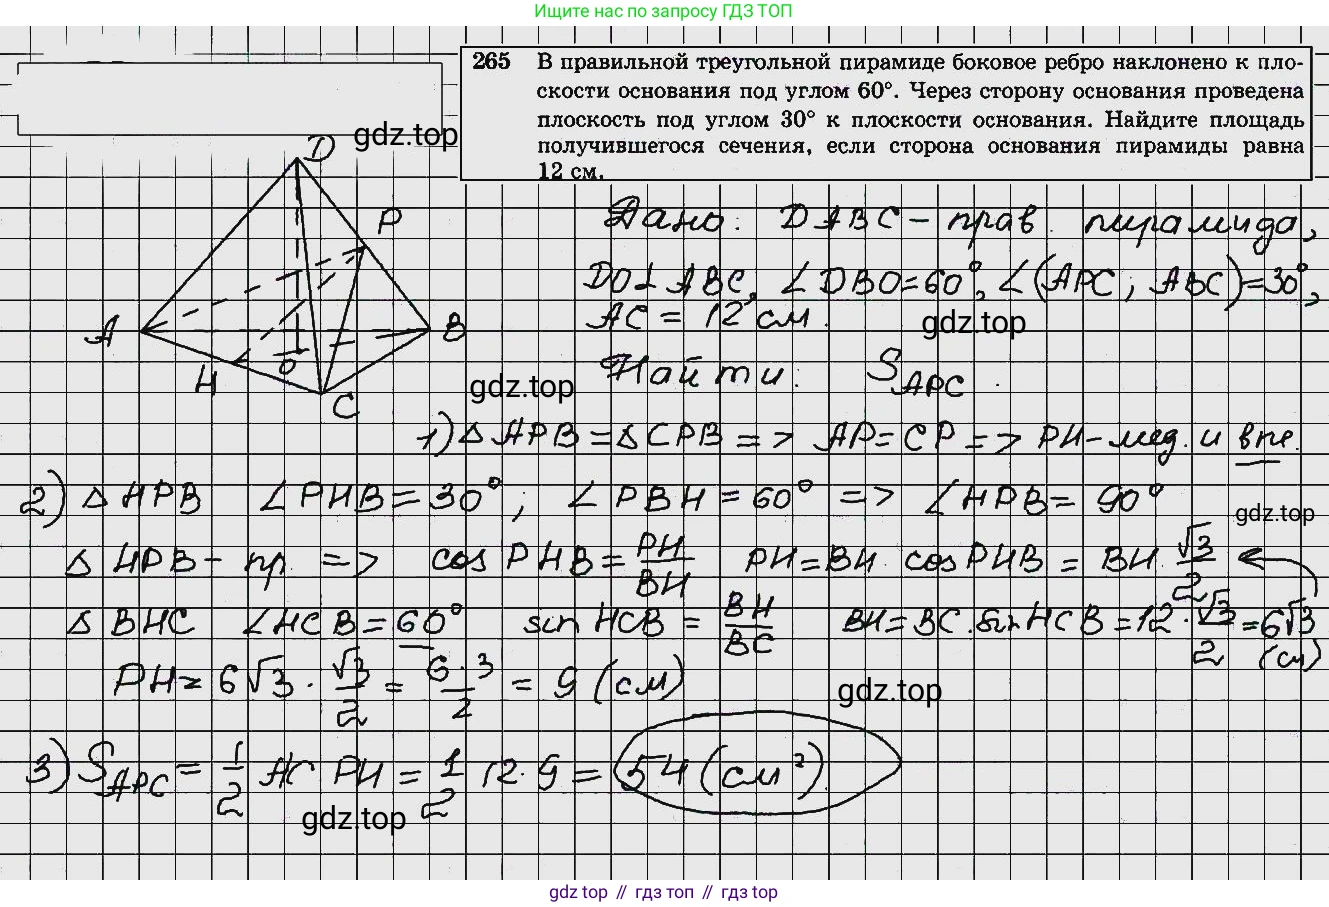 Ищите нас по запросу ГДЗ ТОП
265 В правильной треугольной пирамиде боковое ребро наклонено к пло-
скости основания под углом 60°. Через сторону основания проведена
плоскость под углом 30° к плоскости основания. Найдите площадь
получившегося сечения, если сторона основания пирамиды равна
12 см.
gdz.top
D
P
A
B
H
O
C
Дано: DABC - прав. пирамида,
DO⊥ABC, ∠DBO=60°, ∠(APC; ABC)=30°,
AC = 12 см.
gdz.top
Найти: S_APC.
gdz.top
1) △APB = △CPB => AP=CP => PH-мед. и выс.
2) △HPB ∠PHB = 30°; ∠PBH = 60° => ∠HPB = 90°
gdz.top
△HPB - пр. => cos PHB = PH/BH PH = BH · cos PHB = BH · √3/2
△BHC ∠HCB = 60° sin HCB = BH/BC BH = BC · sin HCB = 12 · √3/2 = 6√3 (см)
PH = 6√3 · √3/2 = 6·3/2 = 9 (см)
gdz.top
3) S_APC = 1/2 AC PH = 1/2 12 · 9 = 54 (см²).
gdz.top
gdz top // гдз топ // gdz top